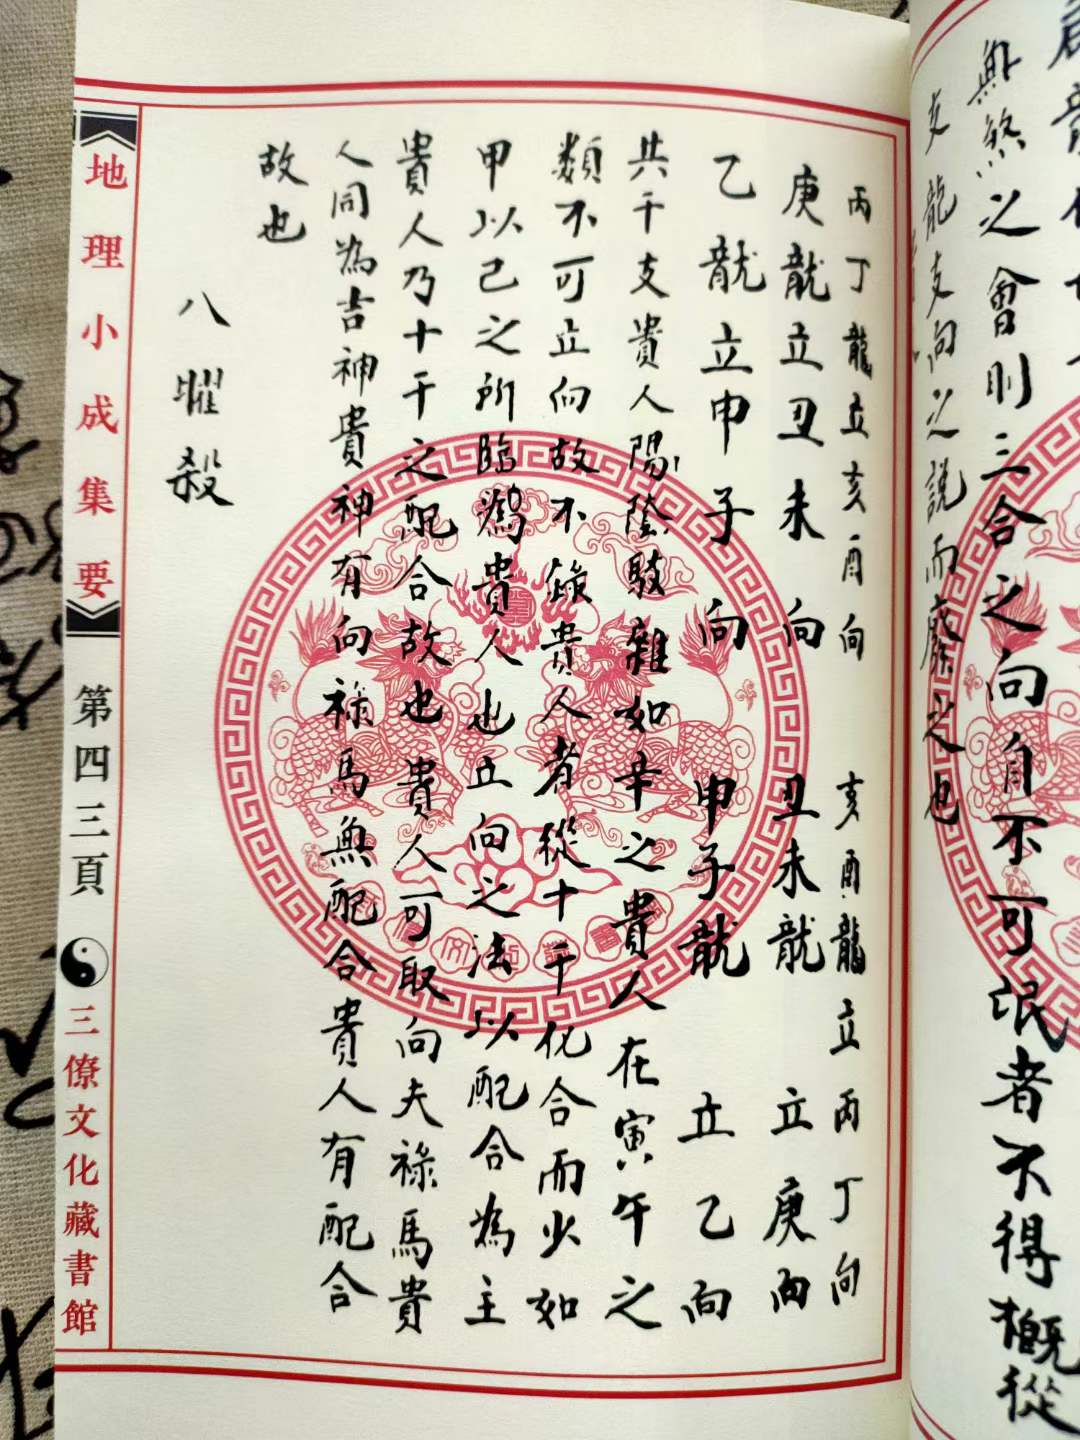 無煞之會則三合之向自不可泯者不得概從
支龍支向之說而廢之也
丙丁龍立亥酉向 亥酉龍立丙丁向
庚龍立丑未向 丑未龍立庚向
乙龍立申子向 申子龍立乙向
共干支貴人陽陰駁雜如辛之貴人在寅午之
類不可立向故不錄貴人者從十干化合而火如
甲以己之所臨為貴人也立向之法以配合為主
貴人乃十干之配合故也貴人可取向夫祿馬貴
人同為吉神貴神有向祿馬無配合貴人有配合
故也
八曜殺
地理小成集要
第四三頁
三僚文化藏書館